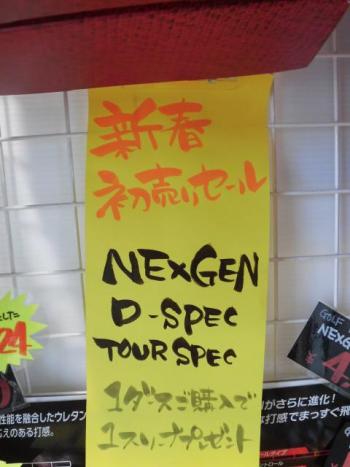 新春
初売りセール
NEXGEN
D-SPEC
TOUR SPEC
1ダースご購入で
1スリーブプレゼント
24
GOLF
NEXG
性能を融合したウレタン
応えのある打感。
がさらに進化!
な打感でまっすぐ飛